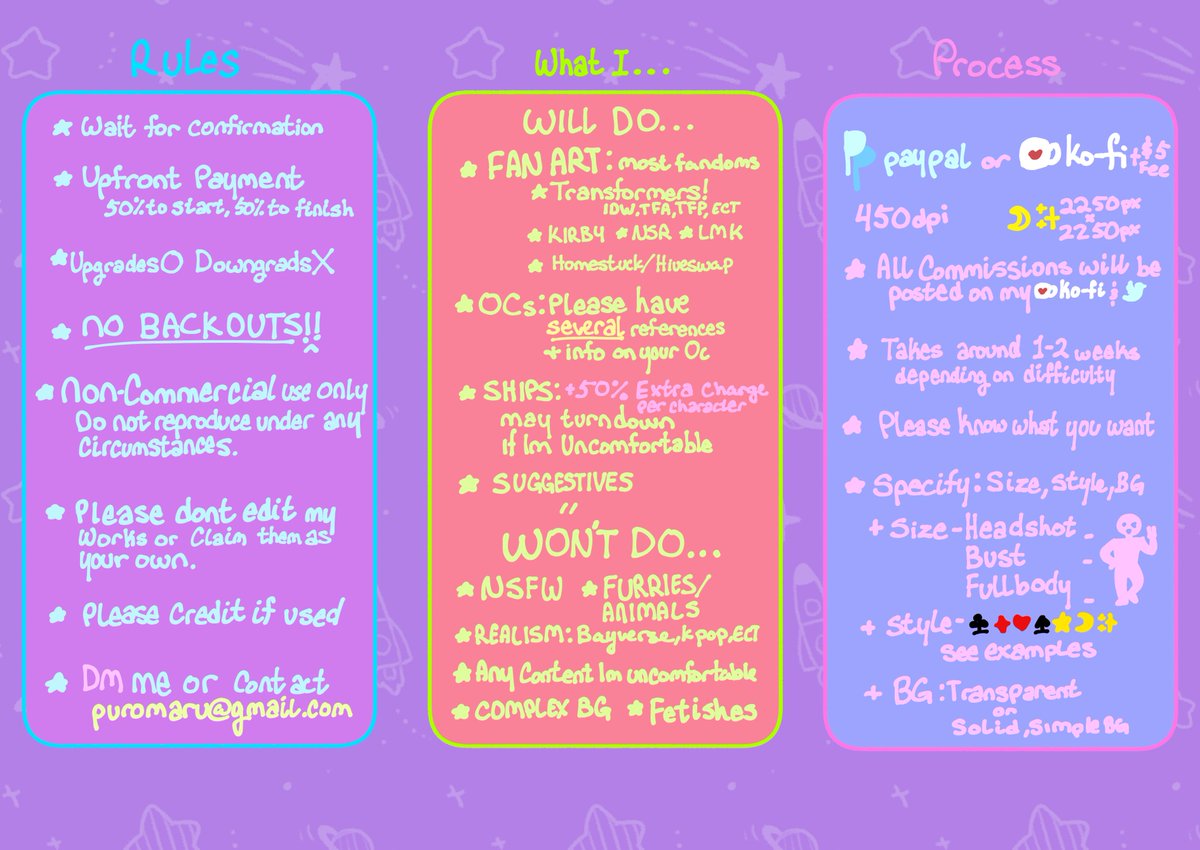 Rules
Wait for confirmation
Upfront Payment
50% to start, 50% to finish
Upgrades O Downgrads X
NO BACKOUTS!!
Non-Commercial use only
Do not reproduce under any
circumstances.
Please dont edit my
works or claim them as
your own.
Please credit if used
DM me or contact
puromaru@gmail.com
What I...
WILL DO...
FAN ART: most fandoms
Transformers!
IDW, TFA, TFP, ECT
KIRBY NSR LMK
Homestuck/Hiveswap
OCs: Please have
several references
+ info on your Oc
SHIPS: +50% Extra charge
per character
may turndown
if Im uncomfortable
SUGGESTIVES
WON'T DO...
NSFW FURRIES/
ANIMALS
REALISM: Bayverse, kpop, ECT
Any Content Im uncomfortable
COMPLEX BG Fetishes
Process
paypal or ko-fi +$5
free
450dpi 2250px
x
2250px
All Commissions will be
posted on my ko-fi &
Takes around 1-2 weeks
depending on difficulty
Please know what you want
Specify: Size, Style, BG
+ Size - Headshot -
Bust -
Fullbody -
+ Style -
see examples
+ BG: Transparent
or
Solid, Simple BG